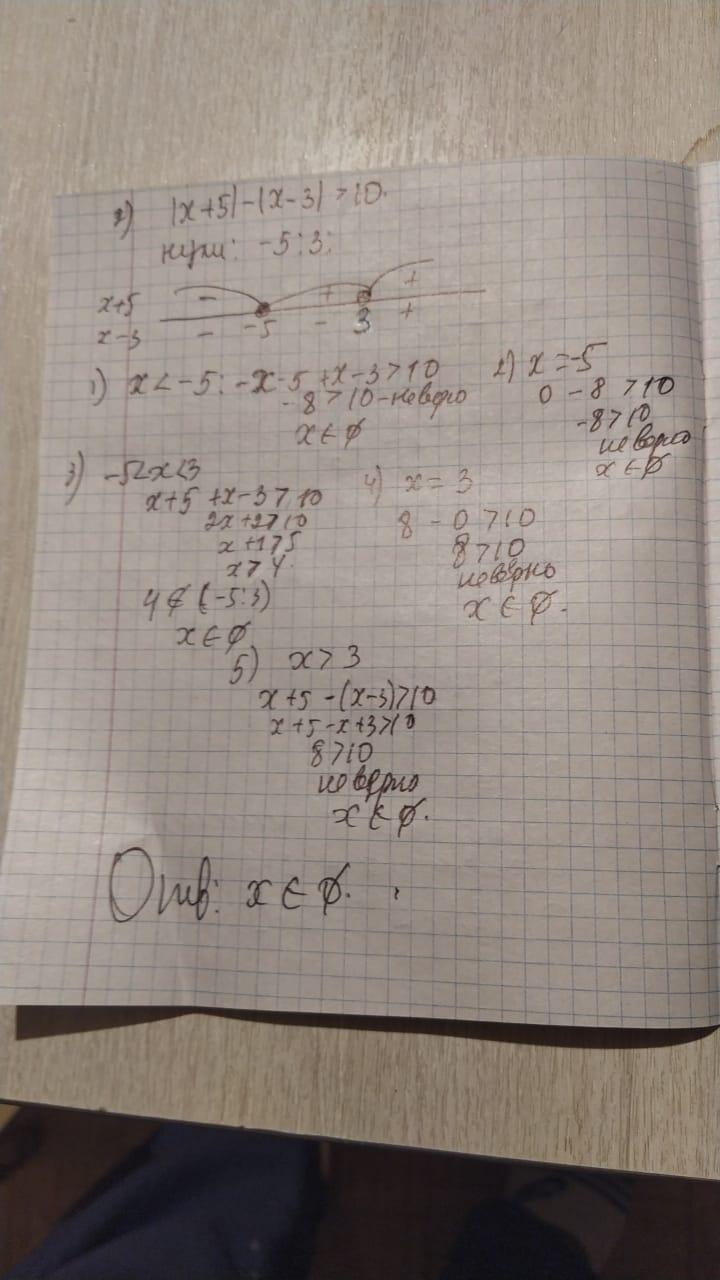 2) |x+5|-|x-3|>10.
нули: -5; 3;
x+5 - + +
x-3 - -5 - 3 +
1) x<-5: -x-5+x-3>10
-8>10 - неверно
x∈∅
2) x=-5
0-8>10
-8>10
неверно
x∈∅
3) -5<x<3
x+5+x-3>10
2x+2>10
x+1>5
x>4.
4∉(-5;3)
x∈∅
4) x=3
8-0>10
8>10
неверно
x∈∅.
5) x>3
x+5-(x-3)>10
x+5-x+3>10
8>10
неверно
x∈∅.
Отв: x∈∅.